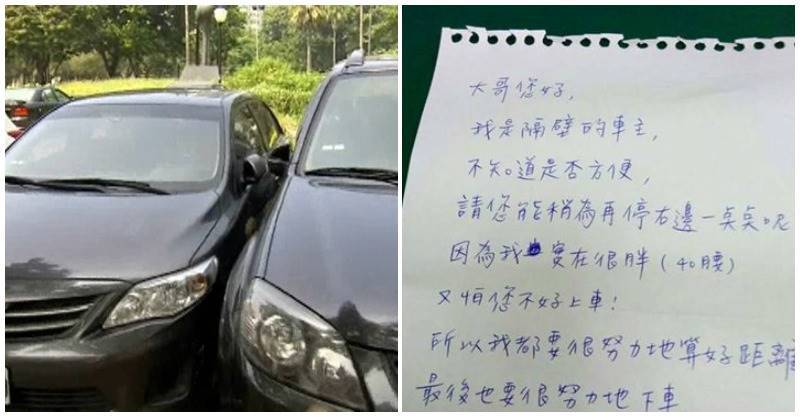 大哥您好,
我是隔壁的車主,
不知道是否方便,
請您能稍為再停右邊一點點呢
因為我實在很胖(40腰)
又怕您不好上車!
所以我都要很努力地算好距離
最後也要很努力地下車